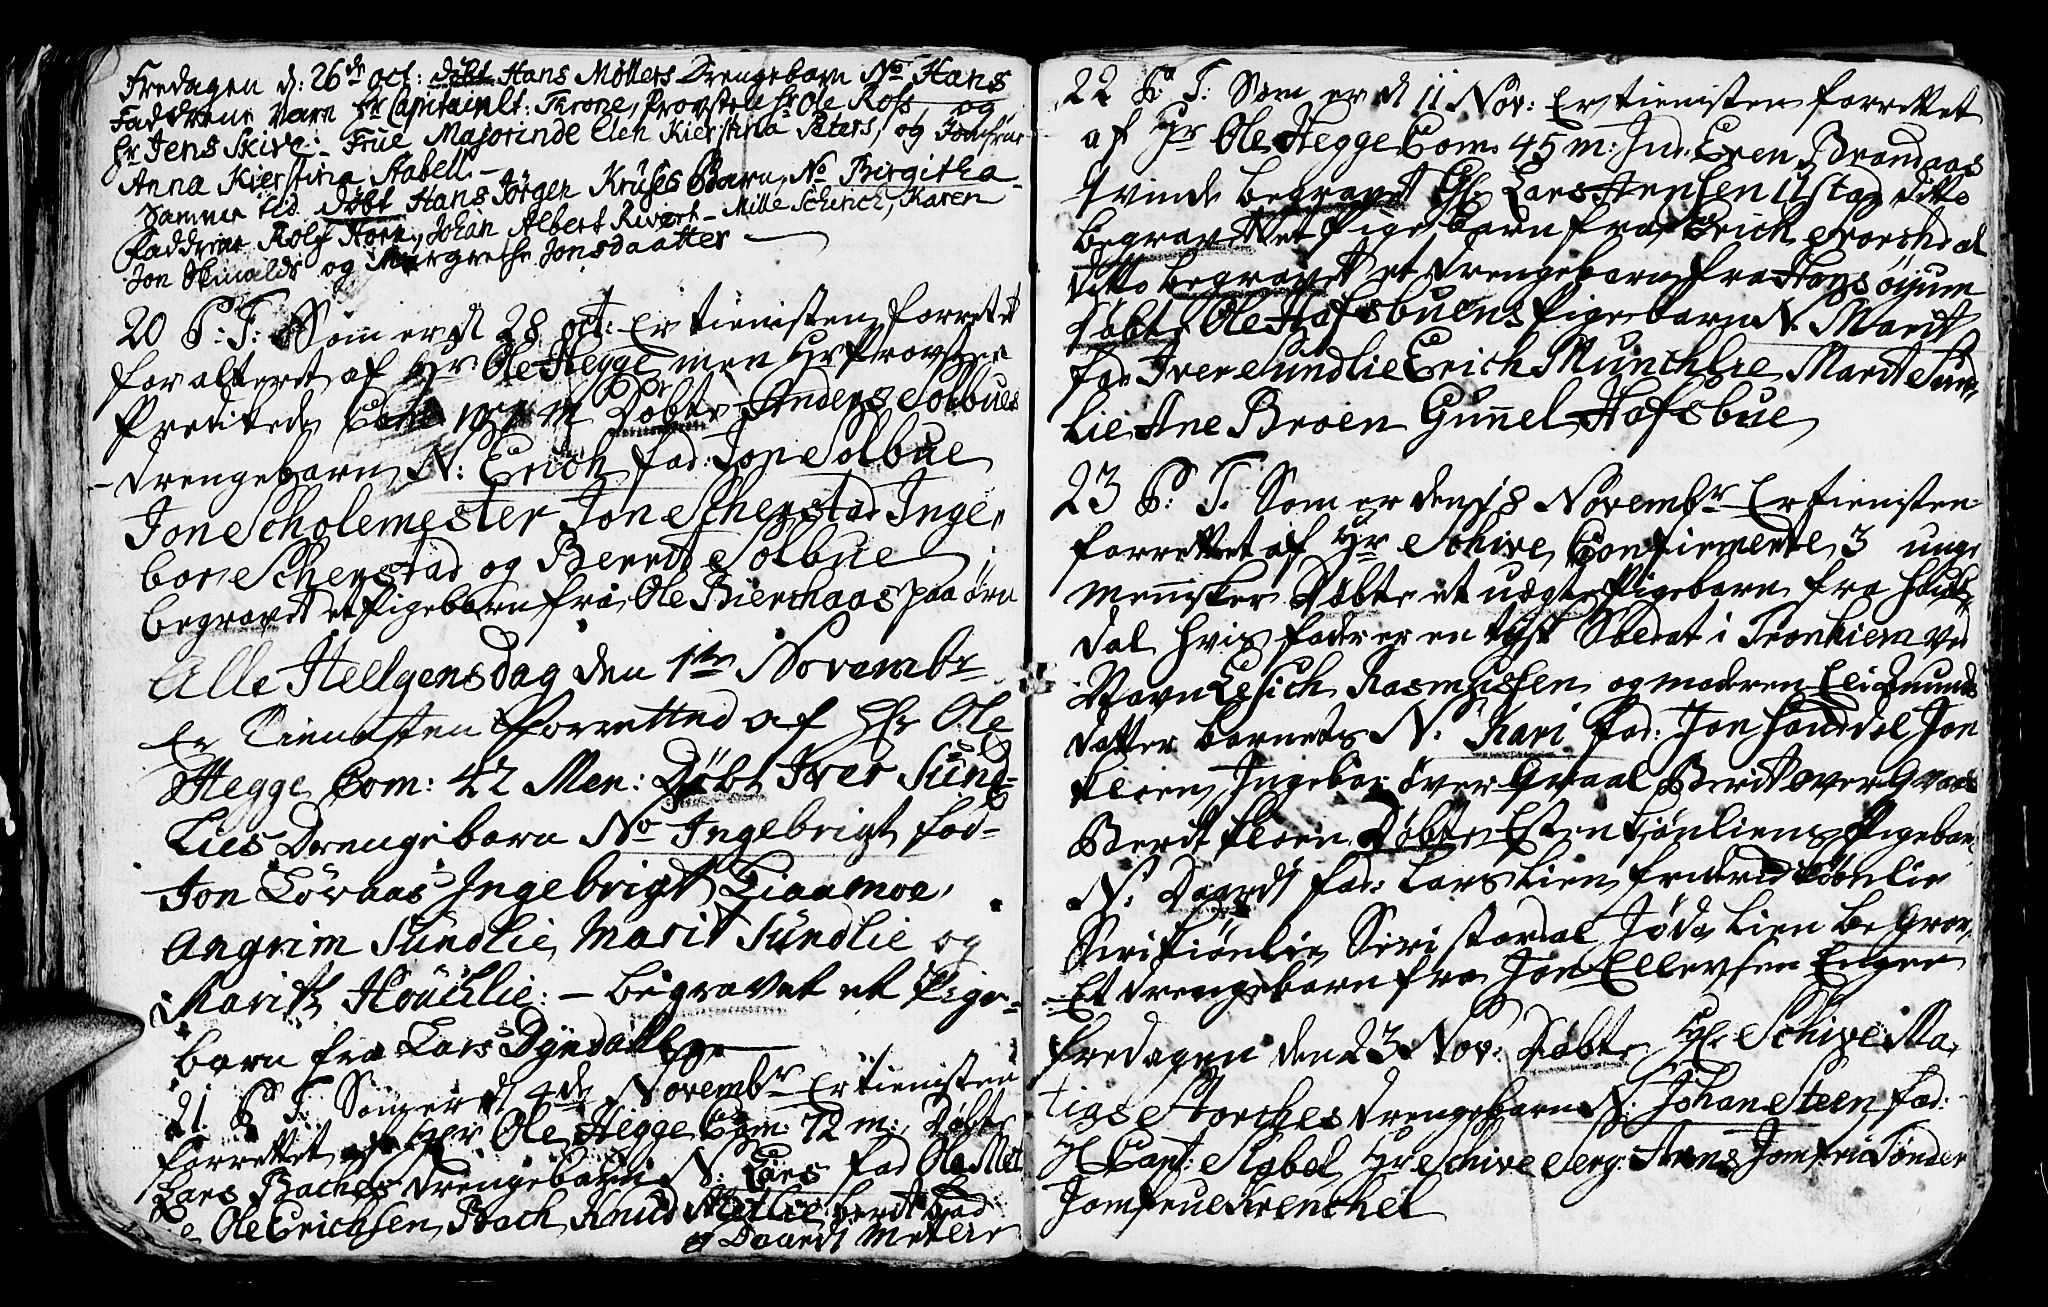 Fredagen d: 26de oct: døbt Hans Møllers Drengebarn No Hans
Faddrene vare Hr Capitainlt: Throne, Provsten Hr Ole Ross, og
Hr Jens Skive: Frue Majorinde Elen Kierstina Peters, og Jomfrue
Anna Kierstina Stabell.
Samme tid døbt Hans Jørgen Kruses Barn No Birgitha
Faddrene Rolf Horn, Johan Albert Rivert - Mille Schenck, Karen
Jon og Margrethe Jonsdaatter
20 P: T: Som er d 28 oct: Er tienisten forrettet
for alteret af Hr Ole Hegge men Hr Provsten
Predikede Com m Døbte Anders Solbues
drengebarn N: Erich fad: Jon Solbue
Jon Scholemester Jon Schenstad Inge
bor Schenstad og Berrit Solbue
begravet et Pigebarn fra Ole Bierchaas paa ørn
Alle Hellgens dag den 1te Novembr
Er Tienesten forretted af Hr Ole
Hegge Com: 42 Men: Døbt Iver Sund-
Lies Drengebarn No Ingebrigt fad-
Jon Løvaas Ingebrigt Liaamoe,
Angrim Sundlie, Marit Sundlie og
Marith Houčlie: - Begravet et Pige-
barn fra Lars Dyndall
21 P T: Som er d 4de Novembr Er tienisten
forrettet af Hr Ole Hegge Com: 72 m: Døbte
Lars Baches drengebarn N: Lars fad Ole Met
Ole Erichsen Bach Knud Metlie berit
og Daardi Metlie
22 P: T: Som er d 11 Nov: Er tienisten forrettet
af Hr Ole Hegge Com: 45 m: Ind: Eren Brandaas
qvinde begravet Gl. Lars Hensen Ustad ditto
begravet et Pigebarn fra Erich Storchdal
ditto begravet et drengebarn fra Hans øijum
Døbte Ole Hafsbuens Pigebarn N. Marit
fad: Iver Sundlie Erich Munchlie Marit Sund
lie Ane Broen Gunnel Hafsbue
23 P: T: Som er den 18 Novembr Er tienisten
forrettet af Hr Schive Confirmerte 3 unge
mennisker Døbte et uægte Pigebarn fra
dal hvis fader er en tysk Soldat i Tronhiem ved
Navn Rasmussen og moderen Eli Amunds
datter barnets N: Kari fad: Jon Jon
Floen Ingebor øver Gvaal Berit over Gvaal
Berit Floen Døbte Esten tiønliens Pigebarn
N: Daardi fad: Lars Lien fridrich tiønlie
Siri tiønlie Siri stordal Jøda Lien Begrav
Et drengebarn fra Jon Ellevsen Engen
fredagen den 23 Nov: Døbte Hr Schive Ma
tias Storches drengebarn N: Johan Steen fad:
H Capt: Stabel Hr Schive Serg: Arns Jomfru Tønder
Jomfrue Krenchel